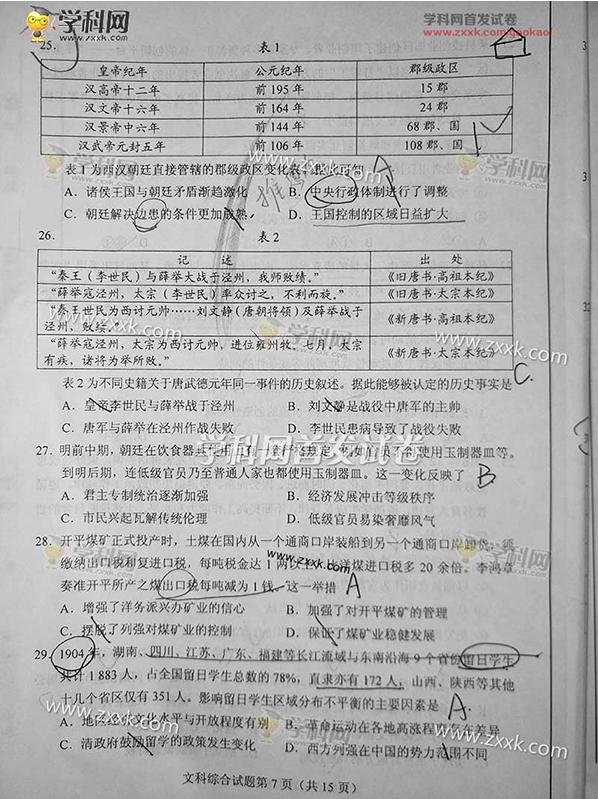 学科网
www.zxxk.com
学科网首发试卷
www.zxxk.com/gaokao/
25．
表1
皇帝纪年 公元纪年 郡级政区
汉高帝十二年 前195年 15郡
汉文帝十六年 前164年 24郡
汉景帝中六年 前144年 68郡、国
汉武帝元封五年 前106年 108郡、国
表1为西汉朝廷直接管辖的郡级政区变化表 A
A．诸侯王国与朝廷矛盾渐趋激化 B．中央行政体制进行了调整
C．朝廷解决边患的条件更加成熟 D．王国控制的区域日益扩大
26．
表2
记述 出处
“秦王（李世民）与薛举大战于泾州，我师败绩。” 《旧唐书·高祖本纪》
“薛举寇泾州，太宗（李世民）率众讨之，不利而旋。” 《旧唐书·太宗本纪》
“秦王世民为西讨元帅……刘文静（唐朝将领）及薛举战于
泾州，败绩。” 《新唐书·高祖本纪》
“薛举寇泾州，太宗为西讨元帅，进位雍州牧。七月，太宗
有疾，诸将为举所败。” 《新唐书·太宗本纪》
表2为不同史籍关于唐武德元年同一事件的历史叙述。据此能够被认定的历史事实是 C.
A．皇帝李世民与薛举战于泾州 B．刘文静是战役中唐军的主帅
C．唐军与薛举在泾州作战失败 D．李世民患病导致了战役失败
学科网首发试卷
27．明前中期，朝廷在饮食器 使用玉制器皿等。
到明后期，连低级官员乃至普通人家也都使用玉制器皿。这一变化反映了 B
A．君主专制统治逐渐加强 B．经济发展冲击等级秩序
C．市民兴起瓦解传统伦理 D．低级官员易染奢靡风气
28．开平煤矿正式投产时，土煤在国内从一个通商口岸装船到另一个通商口岸卸货，须
缴纳出口税和复进口税，每吨税金达1两 洋煤进口税多20余倍。李鸿章
奏准开平所产之煤出口税每吨减为1钱。这一举措 A
A．增强了洋务派兴办矿业的信心 B．加强了对开平煤矿的管理
C．摆脱了列强对煤矿业的控制 D．保证了煤矿业稳健发展
29．1904年，湖南、四川、江苏、广东、福建等长江流域与东南沿海9个省份留日学生
共计1883人，占全国留日学生总数的78%，直隶亦有172人，山西、陕西等其他
十几个省区仅有351人。影响留日学生区域分布不平衡的主要因素是 A.
A．地区经济文化水平与开放程度有别 B．革命运动在各地高涨程度存在差异
C．清政府鼓励留学的政策发生变化 D．西方列强在中国的势力范围不同
文科综合试题第7页（共15页）